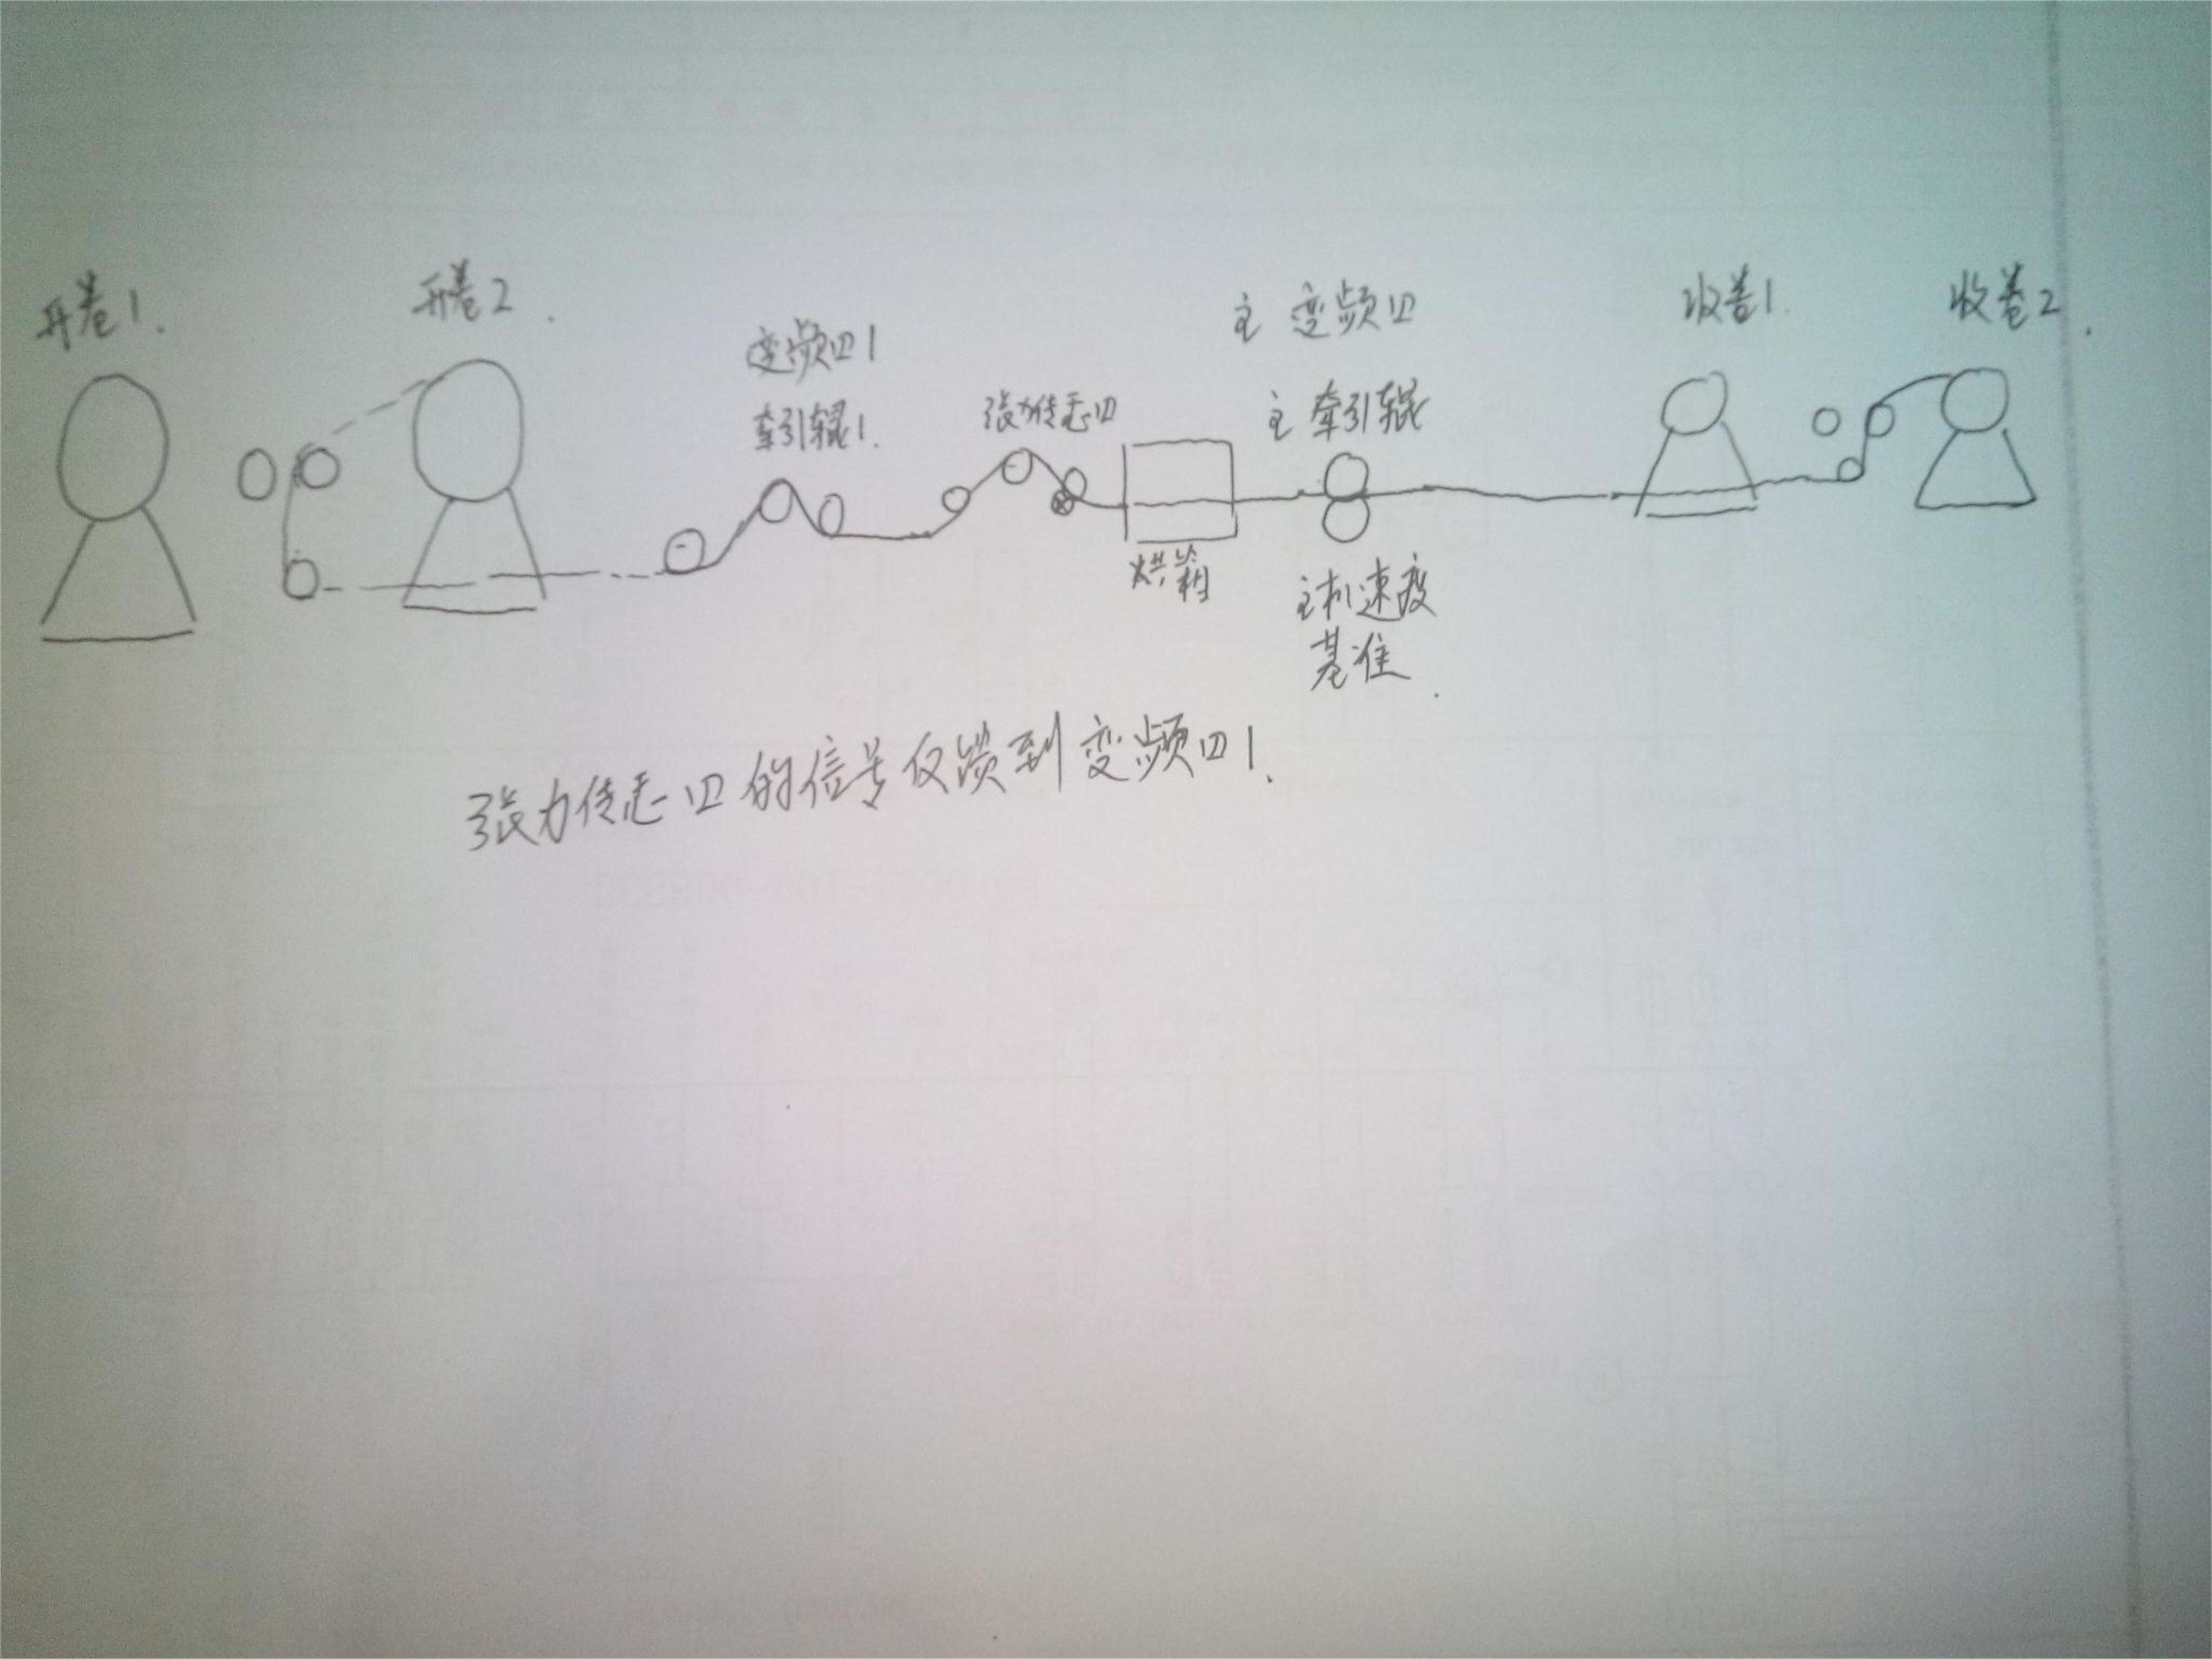 开卷1.
开卷2.
变频四1
牵引辊1.
张力传志四
烘箱
主 变频四
主 牵引辊
主机速度
基准.
收卷1.
收卷2.
张力传志四的信号反馈到变频四1.